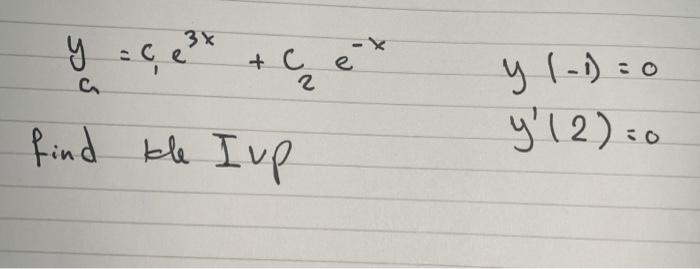 y_G = c₁ e^{3x} + c₂ e^{-x}
y(-1) = 0
y'(2) = 0
find the IVP